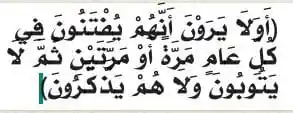 (أَوَلَا يَرَوْنَ أَنَّهُمْ يُفْتَنُونَ فِي
كُلِّ عَامٍ مَرَّةً أَوْ مَرَّتَيْنِ ثُمَّ لَا
يَتُوبُونَ وَلَا هُمْ يَذَّكَّرُونَ)